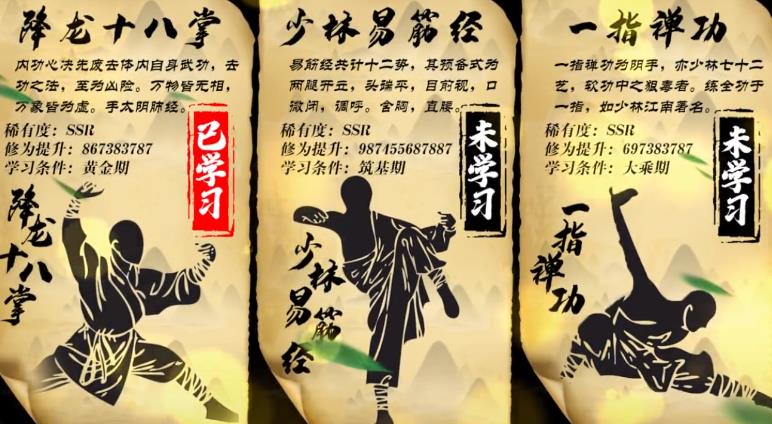 降龙十八掌
内功心决先废去体内自身武功，去
功之法，至为凶险。万物皆无相，
万象皆为虚。手太阴肺经。
稀有度：SSR
修为提升：867383787
学习条件：黄金期
已学习
降龙
十八掌
少林易筋经
易筋经共计十二势，其预备式为
两腿开立，头端平，目前视，口
微闭，调呼。含胸，直腰。
稀有度：SSR
修为提升：987455687887
学习条件：筑基期
未学习
少林
易筋
经
一指禅功
一指禅功为阴手，亦少林七十二
艺，软功中之狠毒者。练全功于
一指，如少林江南著名。
稀有度：SSR
修为提升：697383787
学习条件：大乘期
未学习
一指
禅功